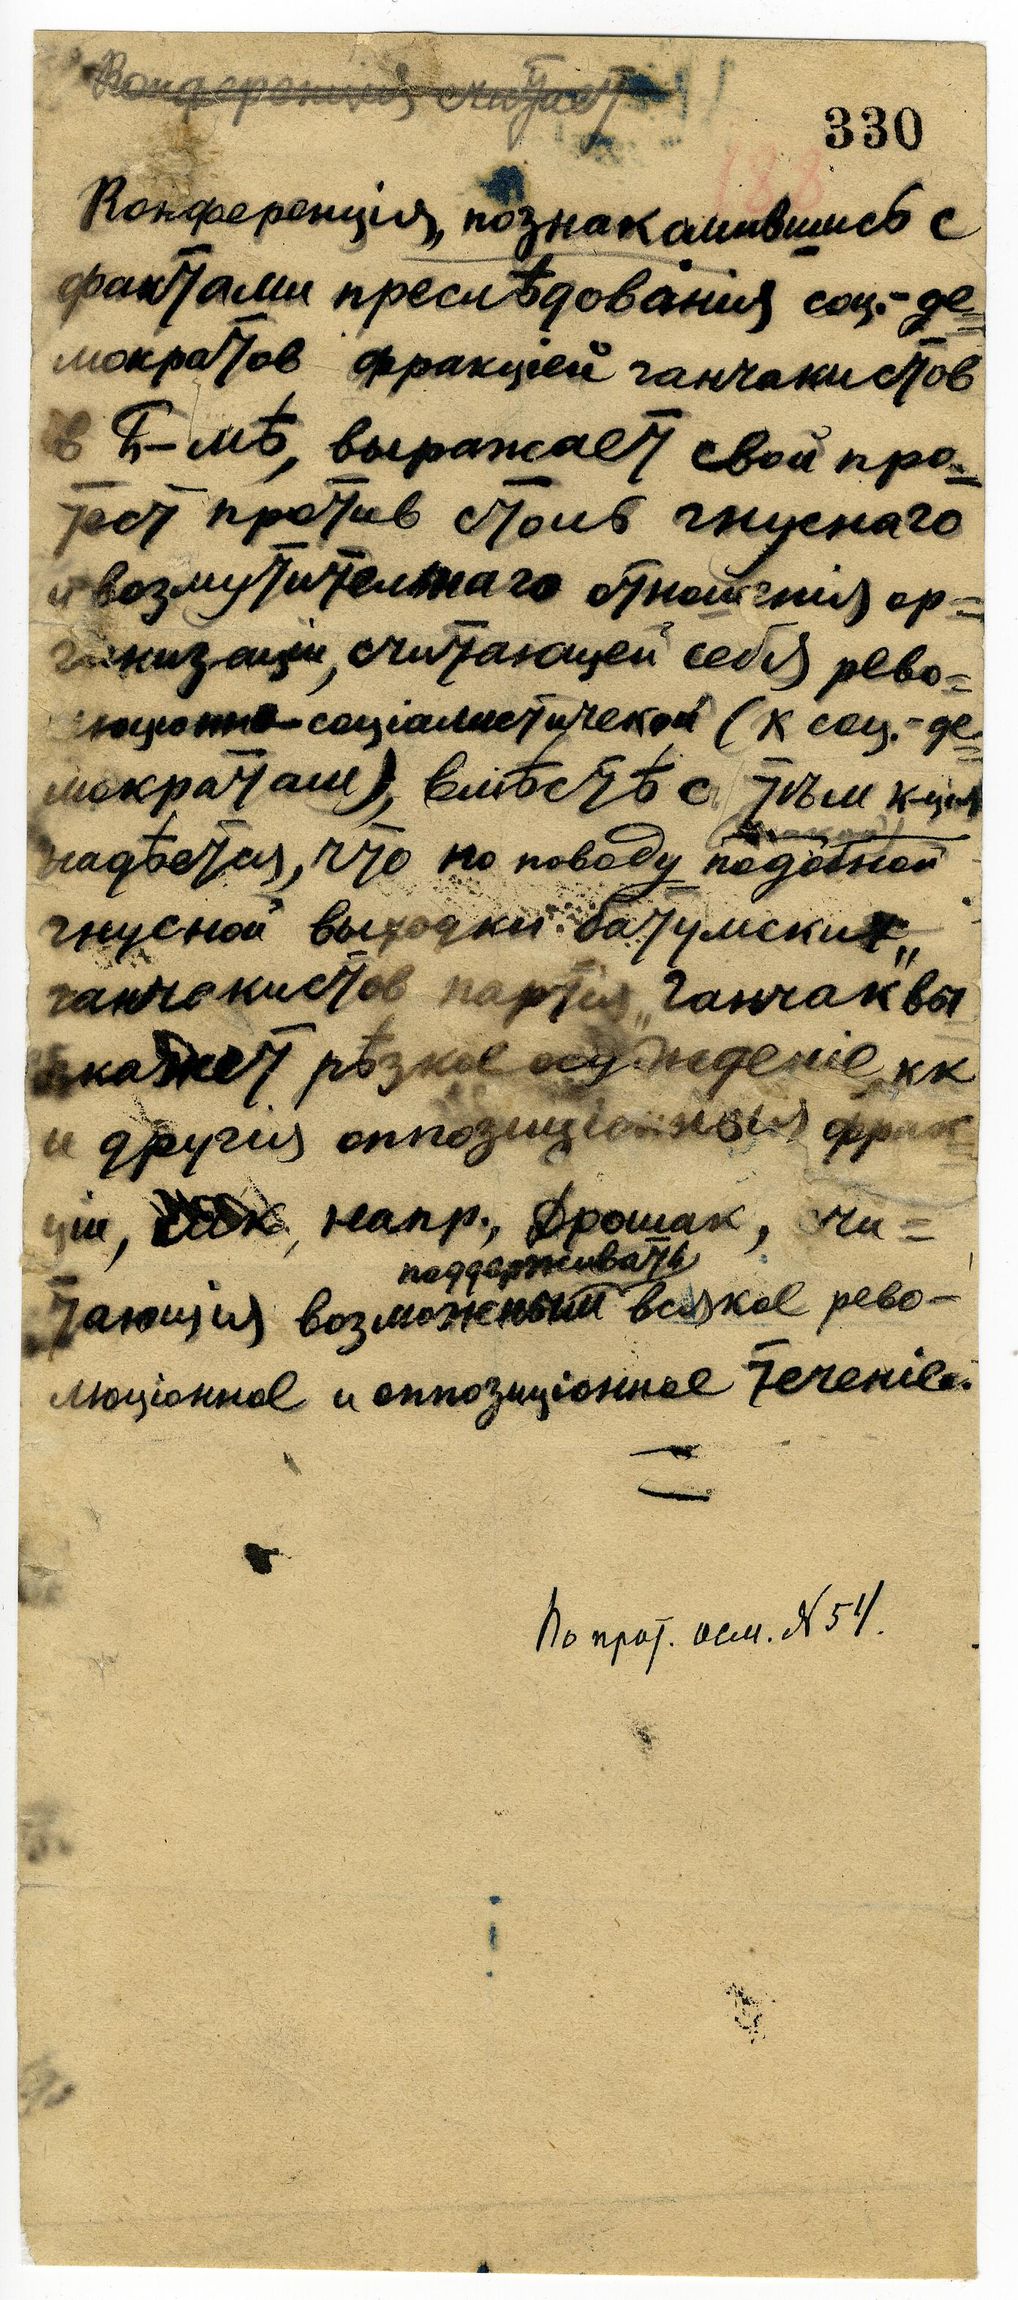 Конференція считает
330
188
Конференція, познакомившись с
фактами преслѣдованія соц.-де=
мократов фракціей ганчакистов
в Б-мѣ, выражает свой про=
тест против столь гнуснаго
и возмутительнаго отношенія ор=
ганизаціи, считающей себя рево=
люціонно-соціалистической (к соц.-де=
мократам), вмѣстѣ с тѣм к-ція
надѣется, что по поводу подобной
гнусной выходки батумских
ганчакистов партія „Ганчак" вы
скажет рѣзкое осужденіе, кк
и другія оппозиціонныя фрак
ціи, как, напр., Дрошак, счи=
поддерживать
тающія возможным всякое рево-
люціонное и оппозиціонное теченіе.
По прот. осм. № 54.